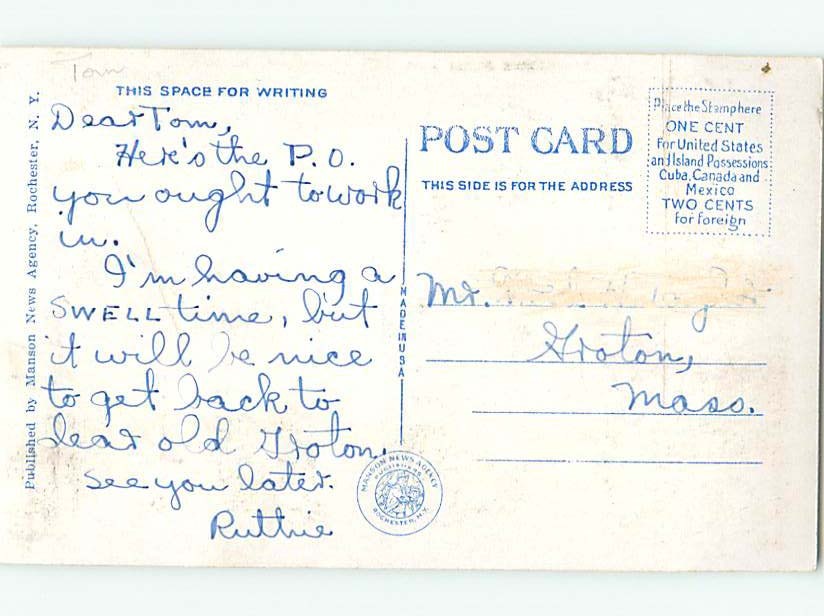 Tom
THIS SPACE FOR WRITING
Dear Tom,
Here's the P.O.
you ought to work
in.
I'm having a
SWELL time, but
it will be nice
to get back to
dear old Groton.
See you later.
Ruthie
Published by Manson News Agency, Rochester, N. Y.
MADE IN USA
POST CARD
THIS SIDE IS FOR THE ADDRESS
Place the Stamp here
ONE CENT
For United States
and Island Possessions
Cuba, Canada and
Mexico
TWO CENTS
for foreign
Mr.
Groton,
Mass.
MANSON NEWS AGENCY
ROCHESTER, N.Y.